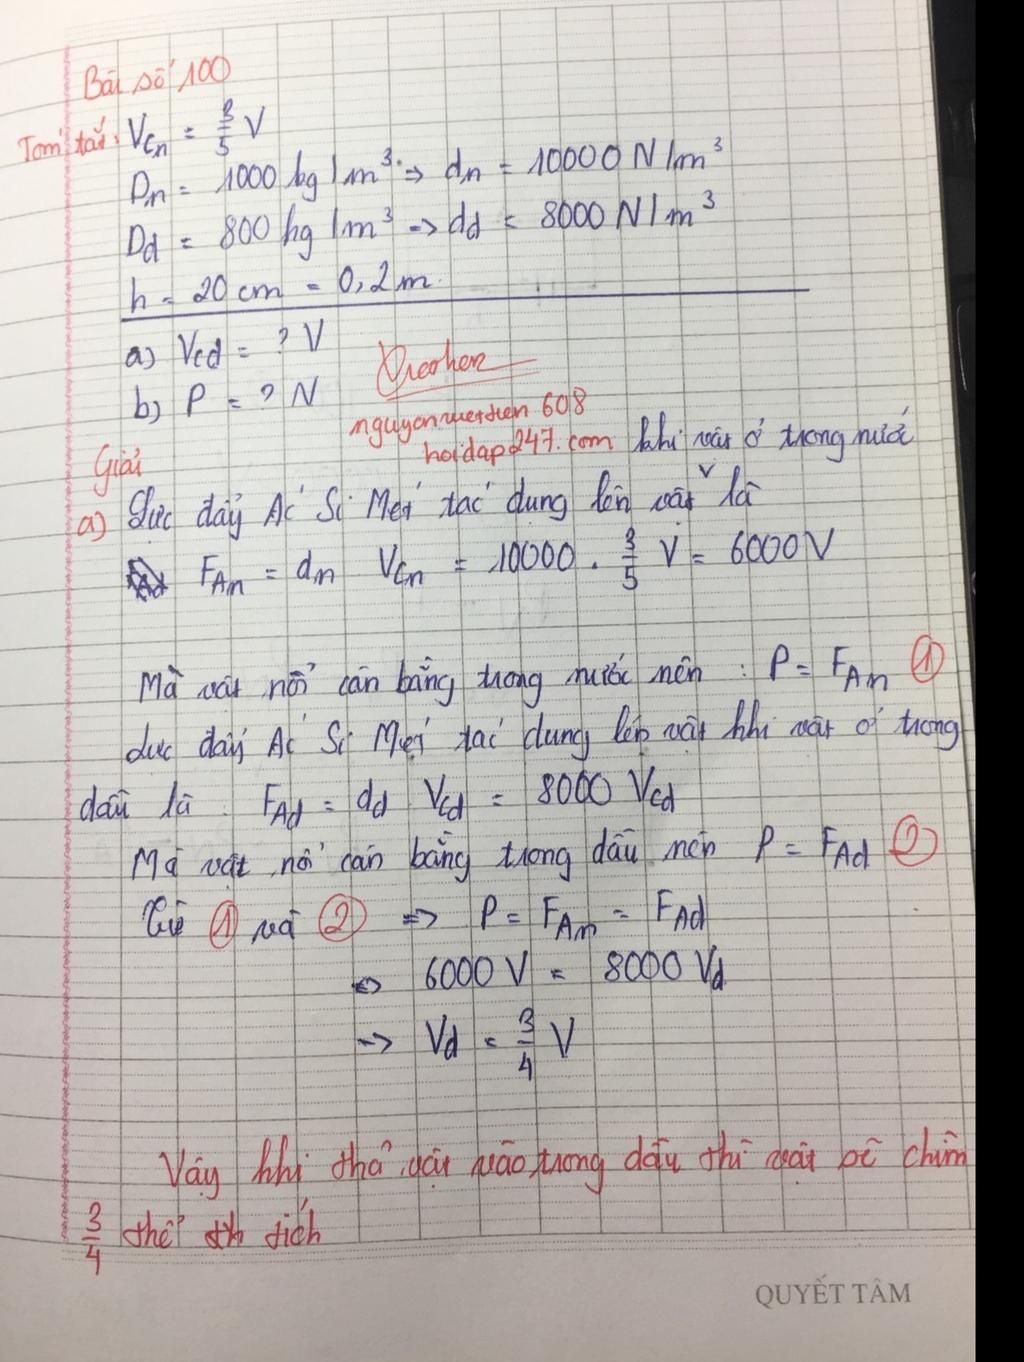 Bài số 100
Tóm tắt: V_Cn = 3/5 V
D_n = 1000 kg/m³ => d_n = 10000 N/m³
D_d = 800 kg/m³ => d_d = 8000 N/m³
h = 20 cm = 0,2 m.
a) V_cd = ? V
b) P = ? N
nguyenvietdien 608
hoidap247.com khi vật ở trong nước
Giải
a) Lực đẩy Ác Si Mét tác dụng lên vật v là
F_An = d_n V_Cn = 10000 . 3/5 V = 6000 V
Mà vật nổi cân bằng trong nước nên : P = F_An ①
Lực đẩy Ác Si Mét tác dụng lên vật khi vật ở trong
dầu là F_Ad = d_d V_cd = 8000 V_cd
Mà vật nổi cân bằng trong dầu nên P = F_Ad ②
Từ ① và ② => P = F_An = F_Ad
<=> 6000 V = 8000 V_d
=> V_d = 3/4 V
Vậy khi thả vật vào trong dầu thì vật sẽ chìm
3/4 thể th tích
QUYẾT TÂM